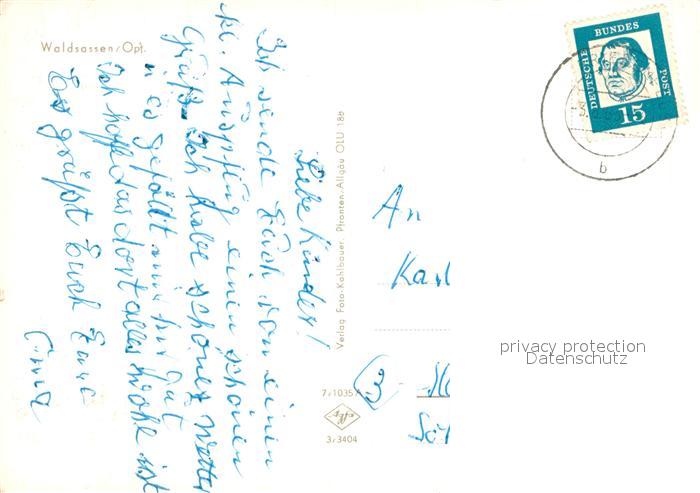 Waldsassen/Opf.
Liebe Kinder!
Ich sende Euch von einen
kl. Ausflug einen schönen
Gruß. Ich habe schönes Wetter
u es gefällt mir hir gut
Ich hoffe das dort alles wohl ist
Es grüßt Euch Eure
Oma
Verlag Foto-Kahlbauer, Pfronten/Allgäu OLU 186
7/1035
3/3404
DEUTSCHE BUNDES POST
15
b
An
Karl
privacy protection
Datenschutz